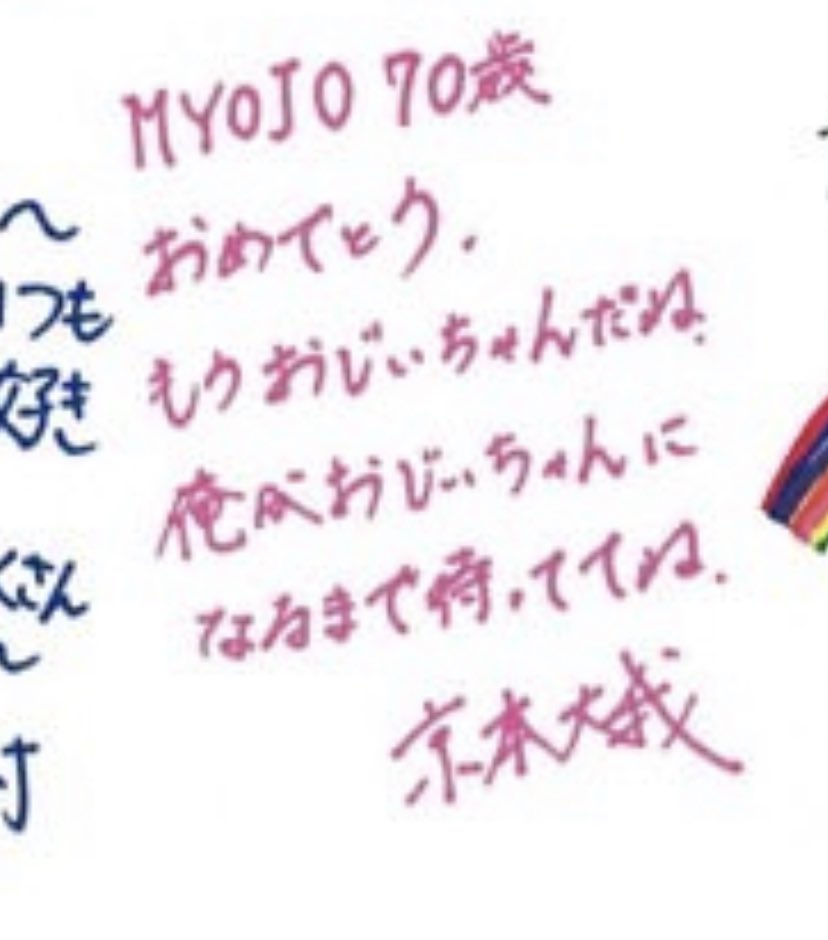 MYOJO 70歳
おめでとう.
もうおじぃちゃんだね.
俺がおじぃちゃんに
なるまで待っててね.
京本大我
へ
つも
好き
さん
村